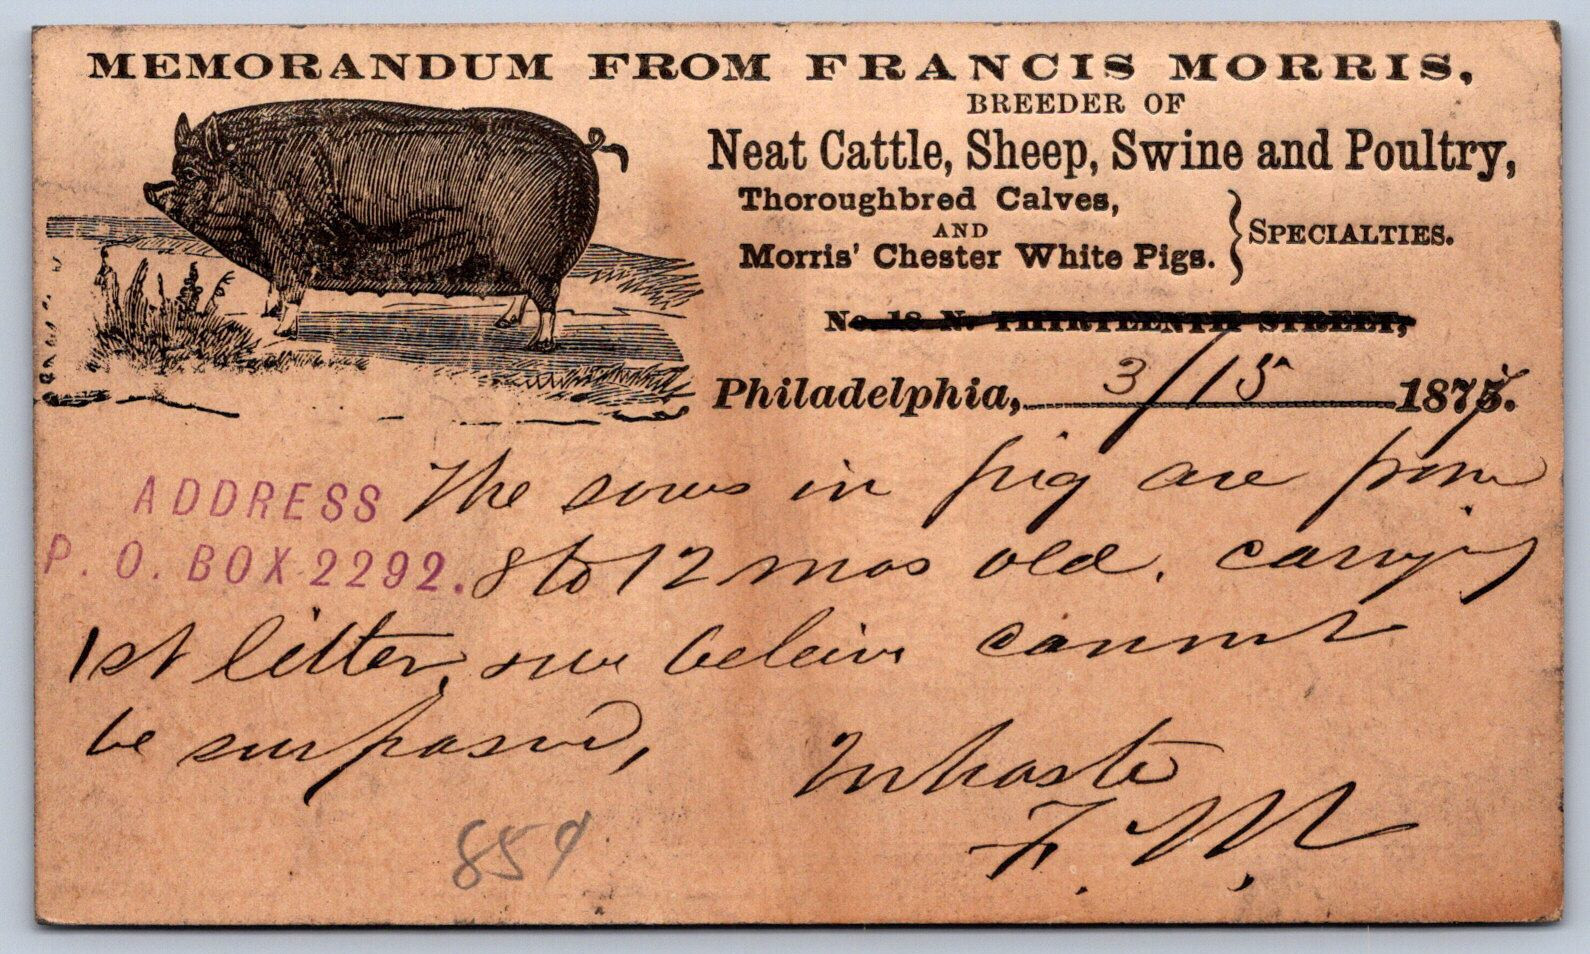 MEMORANDUM FROM FRANCIS MORRIS,
BREEDER OF
Neat Cattle, Sheep, Swine and Poultry,
Thoroughbred Calves,
AND
Morris' Chester White Pigs.
} SPECIALTIES.
No. 18 N. THIRTEENTH STREET,
Philadelphia, 3/15 187
ADDRESS
P. O. BOX 2292.
The sows in pig are from
8 to 12 mos old. carrying
1st litter, we beleive cannot
be surpassed,
In haste
F. M.